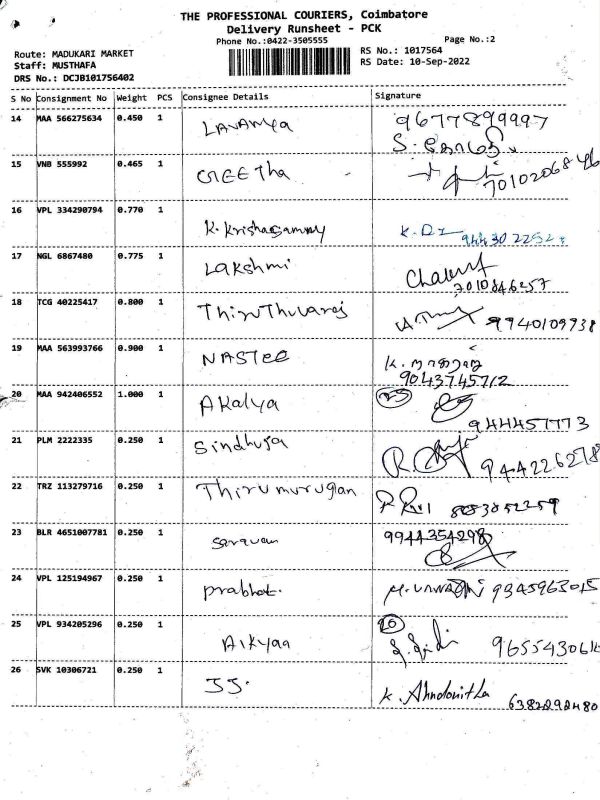 THE PROFESSIONAL COURIERS, Coimbatore
Delivery Runsheet - PCK
Phone No.:0422-3505555
Page No.:2
Route: MADUKARI MARKET
RS No.: 1017564
Staff: MUSTHAFA
RS Date: 10-Sep-2022
DRS No.: DCJB101756402
S No Consignment No Weight PCS Consignee Details Signature
14 MAA 566275634 0.450 1 LAVANYA 9677899997
S. கோமதி
15 VNB 555992 0.465 1 GEETha 7010206846
16 VPL 334290794 0.770 1 K. Krishnasammy
17 NGL 6867480 0.775 1 Lakshmi
7010846257
18 TCG 40225417 0.800 1 Thiruthuvaraj 9940109938
19 MAA 563993766 0.900 1 NASTEE K. நாகராஜ
9043745712
20 MAA 942406552 1.000 1 AKalya 25
944457773
21 PLM 2222335 0.250 1 Sindhuja 9442262789
22 TRZ 113279716 0.250 1 Thirumurugan
23 BLR 4651007781 0.250 1 Saravan 9944354298
24 VPL 125194967 0.250 1 prabhat. 9345963015
25 VPL 934205296 0.250 1 Aikyaa 20
26 SVK 10306721 0.250 1 JJ. K. 6382292480